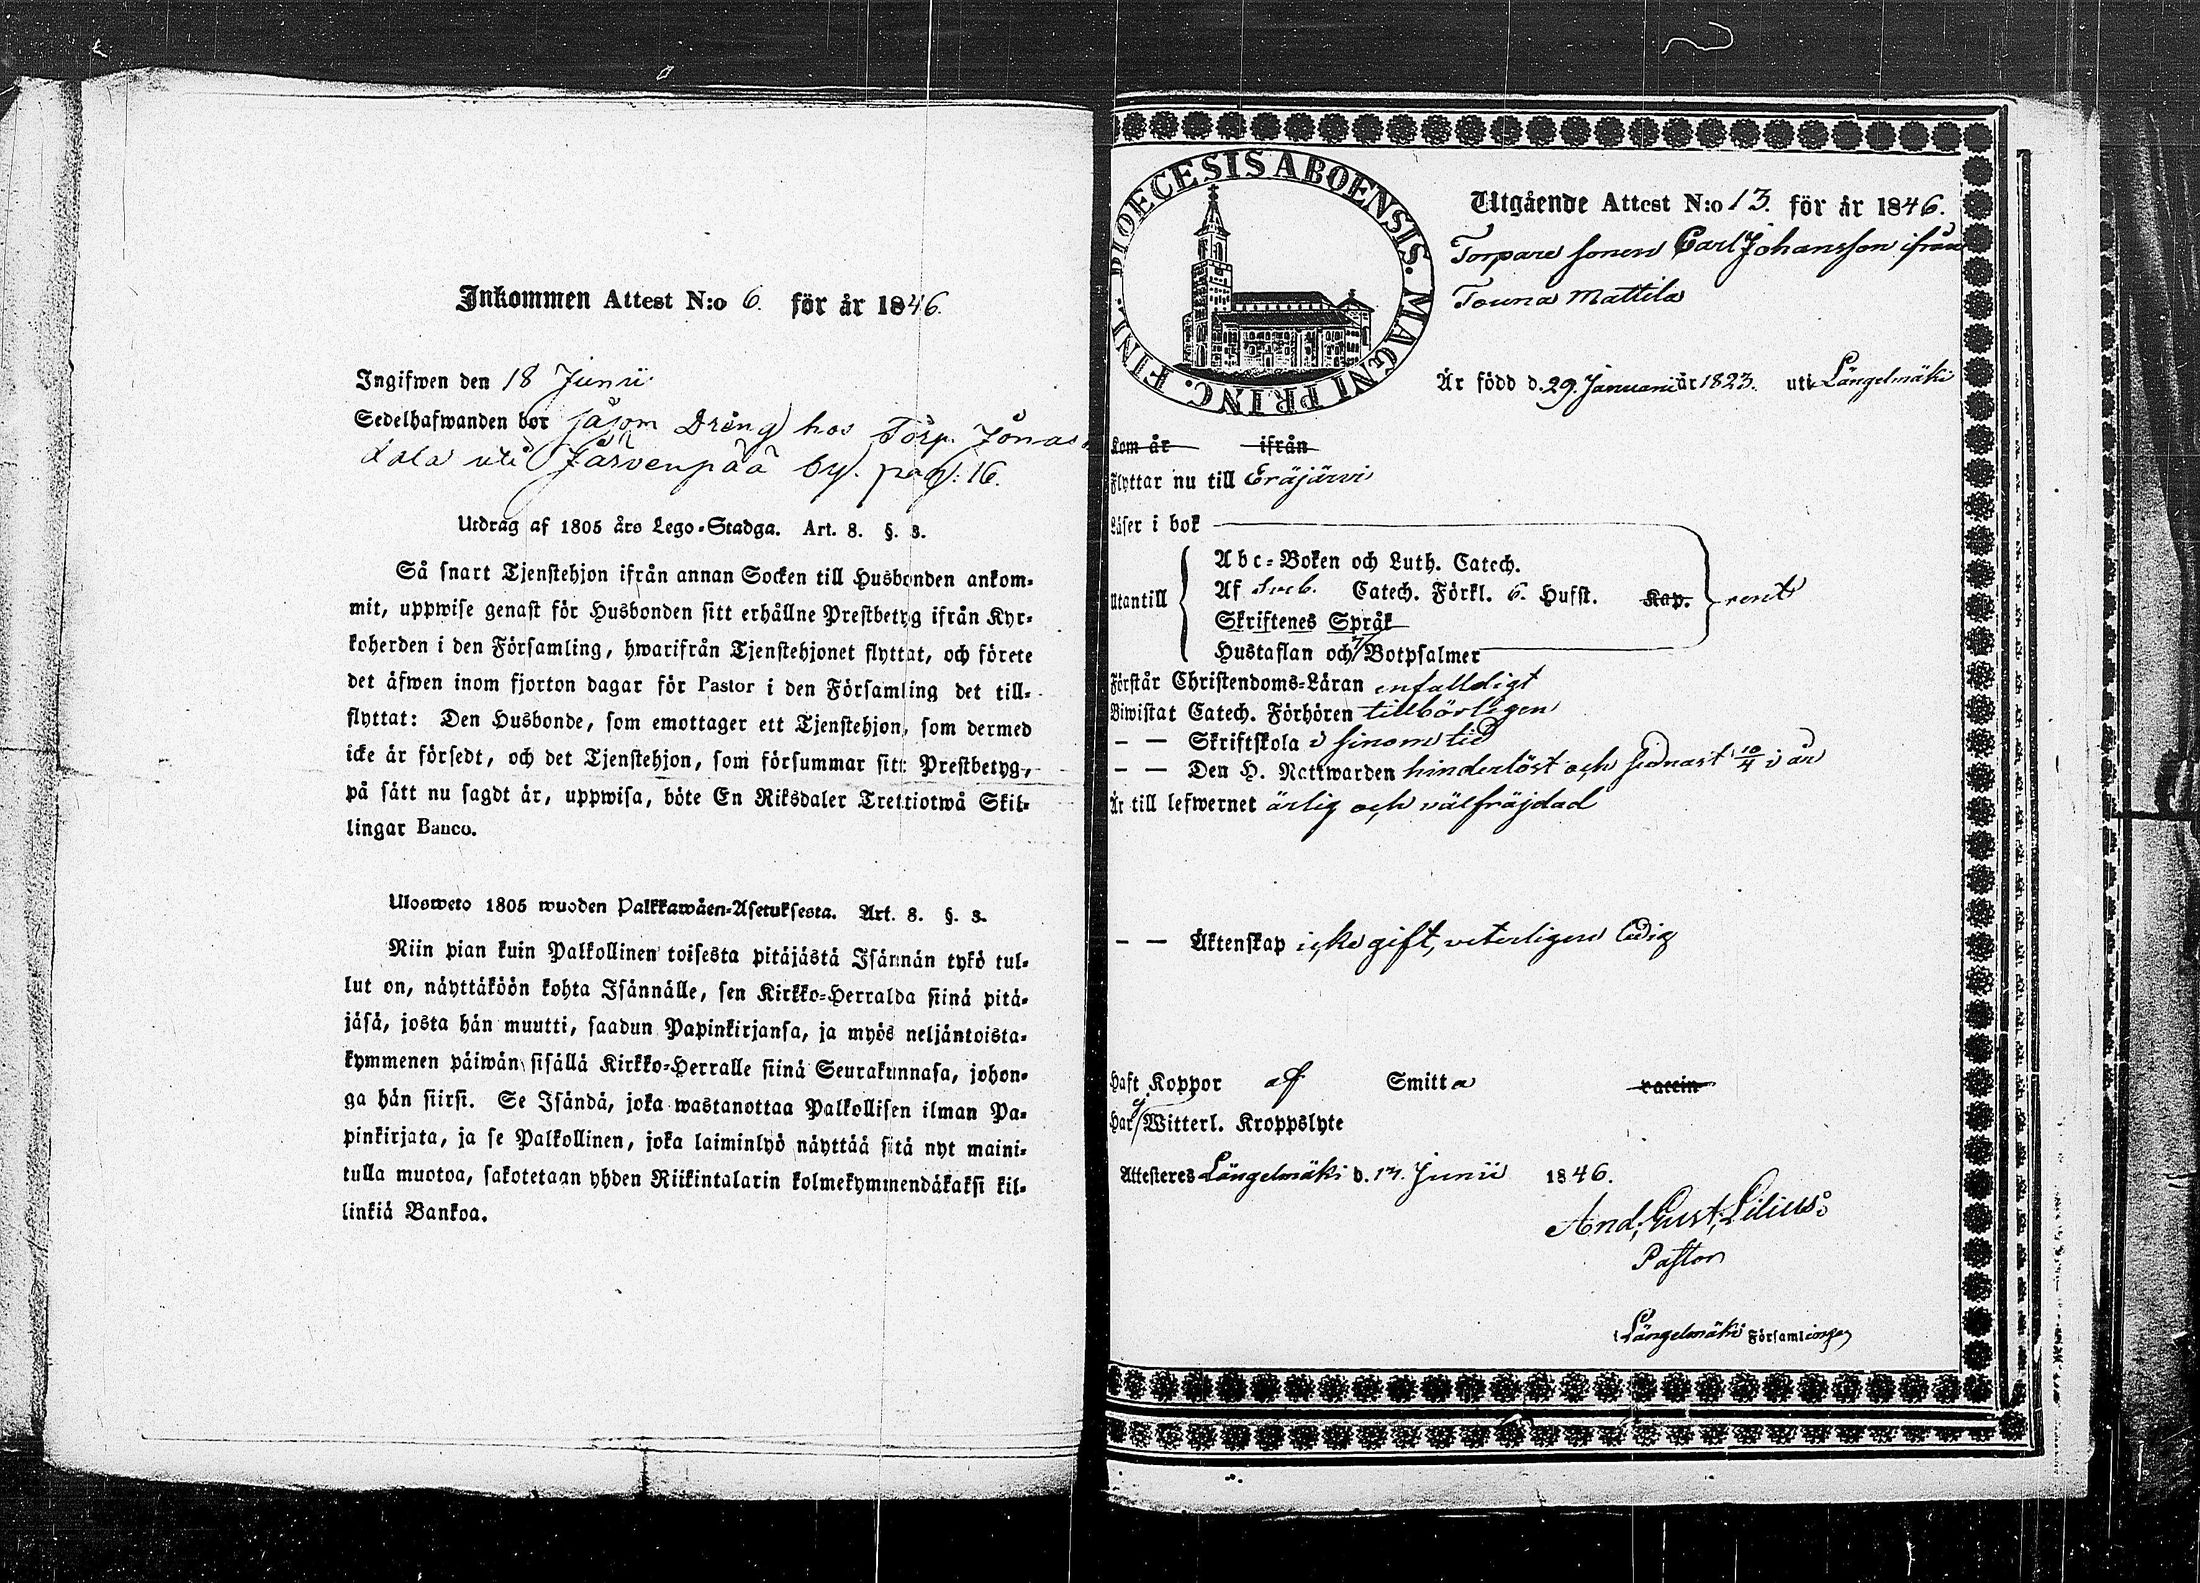 Inkommen Attest N:o 6. för år 1846.
Ingifwen den 18 Junii
Sedelhafwanden bor såsom Dräng hos Torp. Jonas
uti Järvenpää by. pag: 16.
Utdrag af 1805 års Lego-Stadga. Art. 8. §. 3.
Så snart Tjenstehjon ifrån annan Socken till Husbonden ankom-
mit, uppwise genast för Husbonden sitt erhållne Prestbetyg ifrån Kyr-
koherden i den Församling, hwarifrån Tjenstehjonet flyttat, och förete
det äfwen inom fjorton dagar för Pastor i den Församling det till-
flyttat: Den Husbonde, som emottager ett Tjenstehjon, som dermed
icke är försedt, och det Tjenstehjon, som försummar sitt Prestbetyg,
på sätt nu sagdt är, uppwisa, böte En Riksdaler Trettiotwå Skil-
lingar Banco.
Ulosweto 1805 wuoden Palkkawäen-Asetuksesta. Art. 8. §. 3.
Niin pian kuin Palkollinen toisesta pitäjästä Isännän tykö tul-
lut on, näyttäköön kohta Isännälle, sen Kirkko-Herralda siinä pitä-
jäsä, josta hän muutti, saadun Papinkirjansa, ja myös neljäntoista-
kymmenen päiwän sisällä Kirkko-Herralle siinä Seurakunnasa, johon-
ga hän siirsi. Se Isändä, joka wastanottaa Palkollisen ilman Pa-
pinkirjata, ja se Palkollinen, joka laiminlyö näyttää sitä nyt maini-
tulla muotoa, sakotetaan yhden Riikintalarin kolmekymmendäkaksi kil-
linkiä Bankoa.
DIOECESIS ABOENSIS. MAGNI PRINC. FINL.
Utgående Attest N:o 13. för år 1846.
Torpare sonen Carl Johansson ifrån
Touna Mattila
Är född d. 29. Januari år 1823. uti Längelmäki
Kom år ifrån
Flyttar nu till Eräjärvi
Läser i bok
Abc-Boken och Luth. Catech.
Utantill Af Sveb. Catech. Förkl. 6. Hufst. Kap. rent
Skriftenes Språk
Hustaflan och 7 Botpsalmer
Förstår Christendoms-Läran enfalldigt
Biwistat Catech. Förhören tillbörligen
– – Skriftskola i sinom tid
– – Den H. Nattwarden hinderlöst och sednast 10/4 i år
Är till lefwernet ärlig och välfräjdad
– – Äktenskap icke gift, veterligen ledig
Haft Koppor af Smitta vaccin
Har ej Witterl. Kroppslyte
Attesteres Längelmäki d. 17. Junii 1846.
And. Gust. Lilius:
Pastor
Längelmäki Församlings